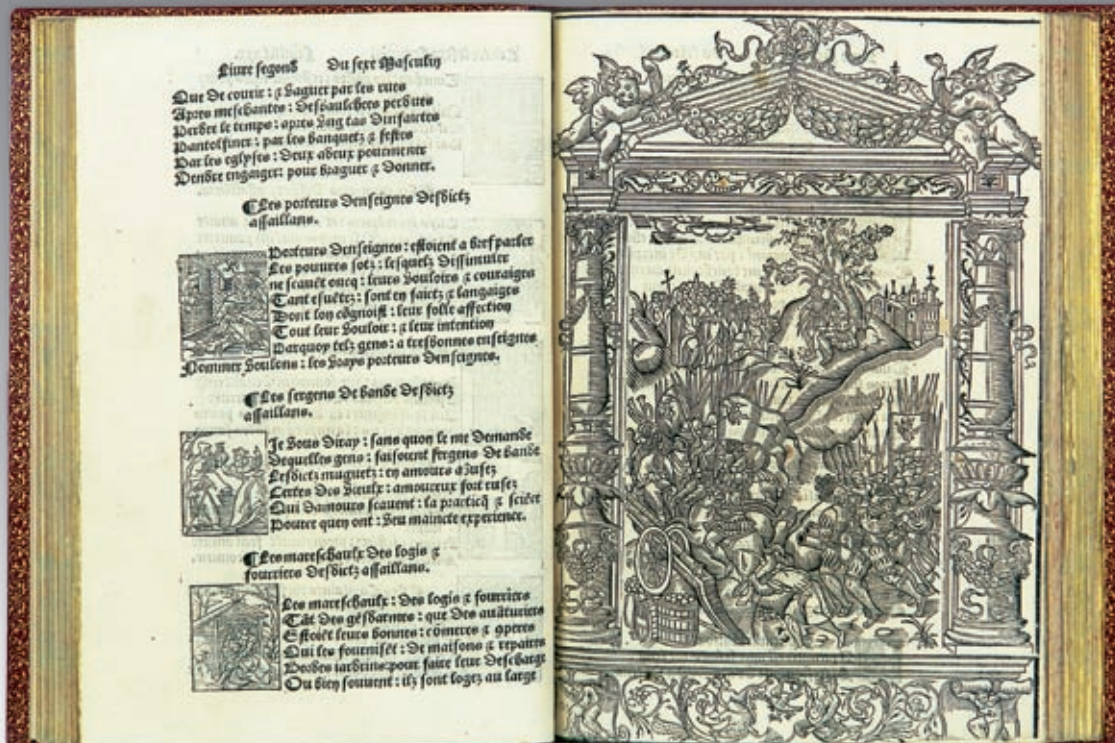 Livre second Du sexe Masculin
Que de courir : & vaguer par les rues
Apres meschantes : desbaulchees perdues
Perdre le temps : apres ung tas dinfaictes
Pantolfiner : par les banquetz & festes
Par les eglyses : deux a deux pourmener
Vendre engaiger : pour braguer & donner.
¶ Les porteurs denseignes desdictz
assaillans.
Porteurs denseignes : estoient a bref parler
Les pouures sotz : lesquelz dissimuler
ne scauēt oncq : leurs vouloirs & couraiges
Tant esuētez : sont en faictz & langaiges
Dont lon cōgnoist : leur folle affection
Tout leur vouloir : & leur intention
Parquoy telz gens : a tresbonnes enseignes
Nommer voulons : les vrays porteurs denseignes.
¶ Les sergens de bande desdictz
assaillans.
Je vous diray : sans quon le me demande
Dequelles gens : faisoient sergens de bande
Lesdictz muguetz : en amours abusez
Certes des vieulx : amoureux fort rusez
Qui damours scauent : la practicq̄ & sciēce
Pource quen ont : veu maincte experience.
¶ Les mareschaulx des logis &
fourriers desdictz assaillans.
Les mareschaulx : des logis & fourriers
Tāt des gēsdarmes : que des auāturiers
Estoiēt leurs bonnes : cōmeres & cōperes
Qui les fournisēt : de maisons & repaires
Dordes iardins : pour faire leur descharge
Ou bien souuent : ilz sont logez au large
S
S